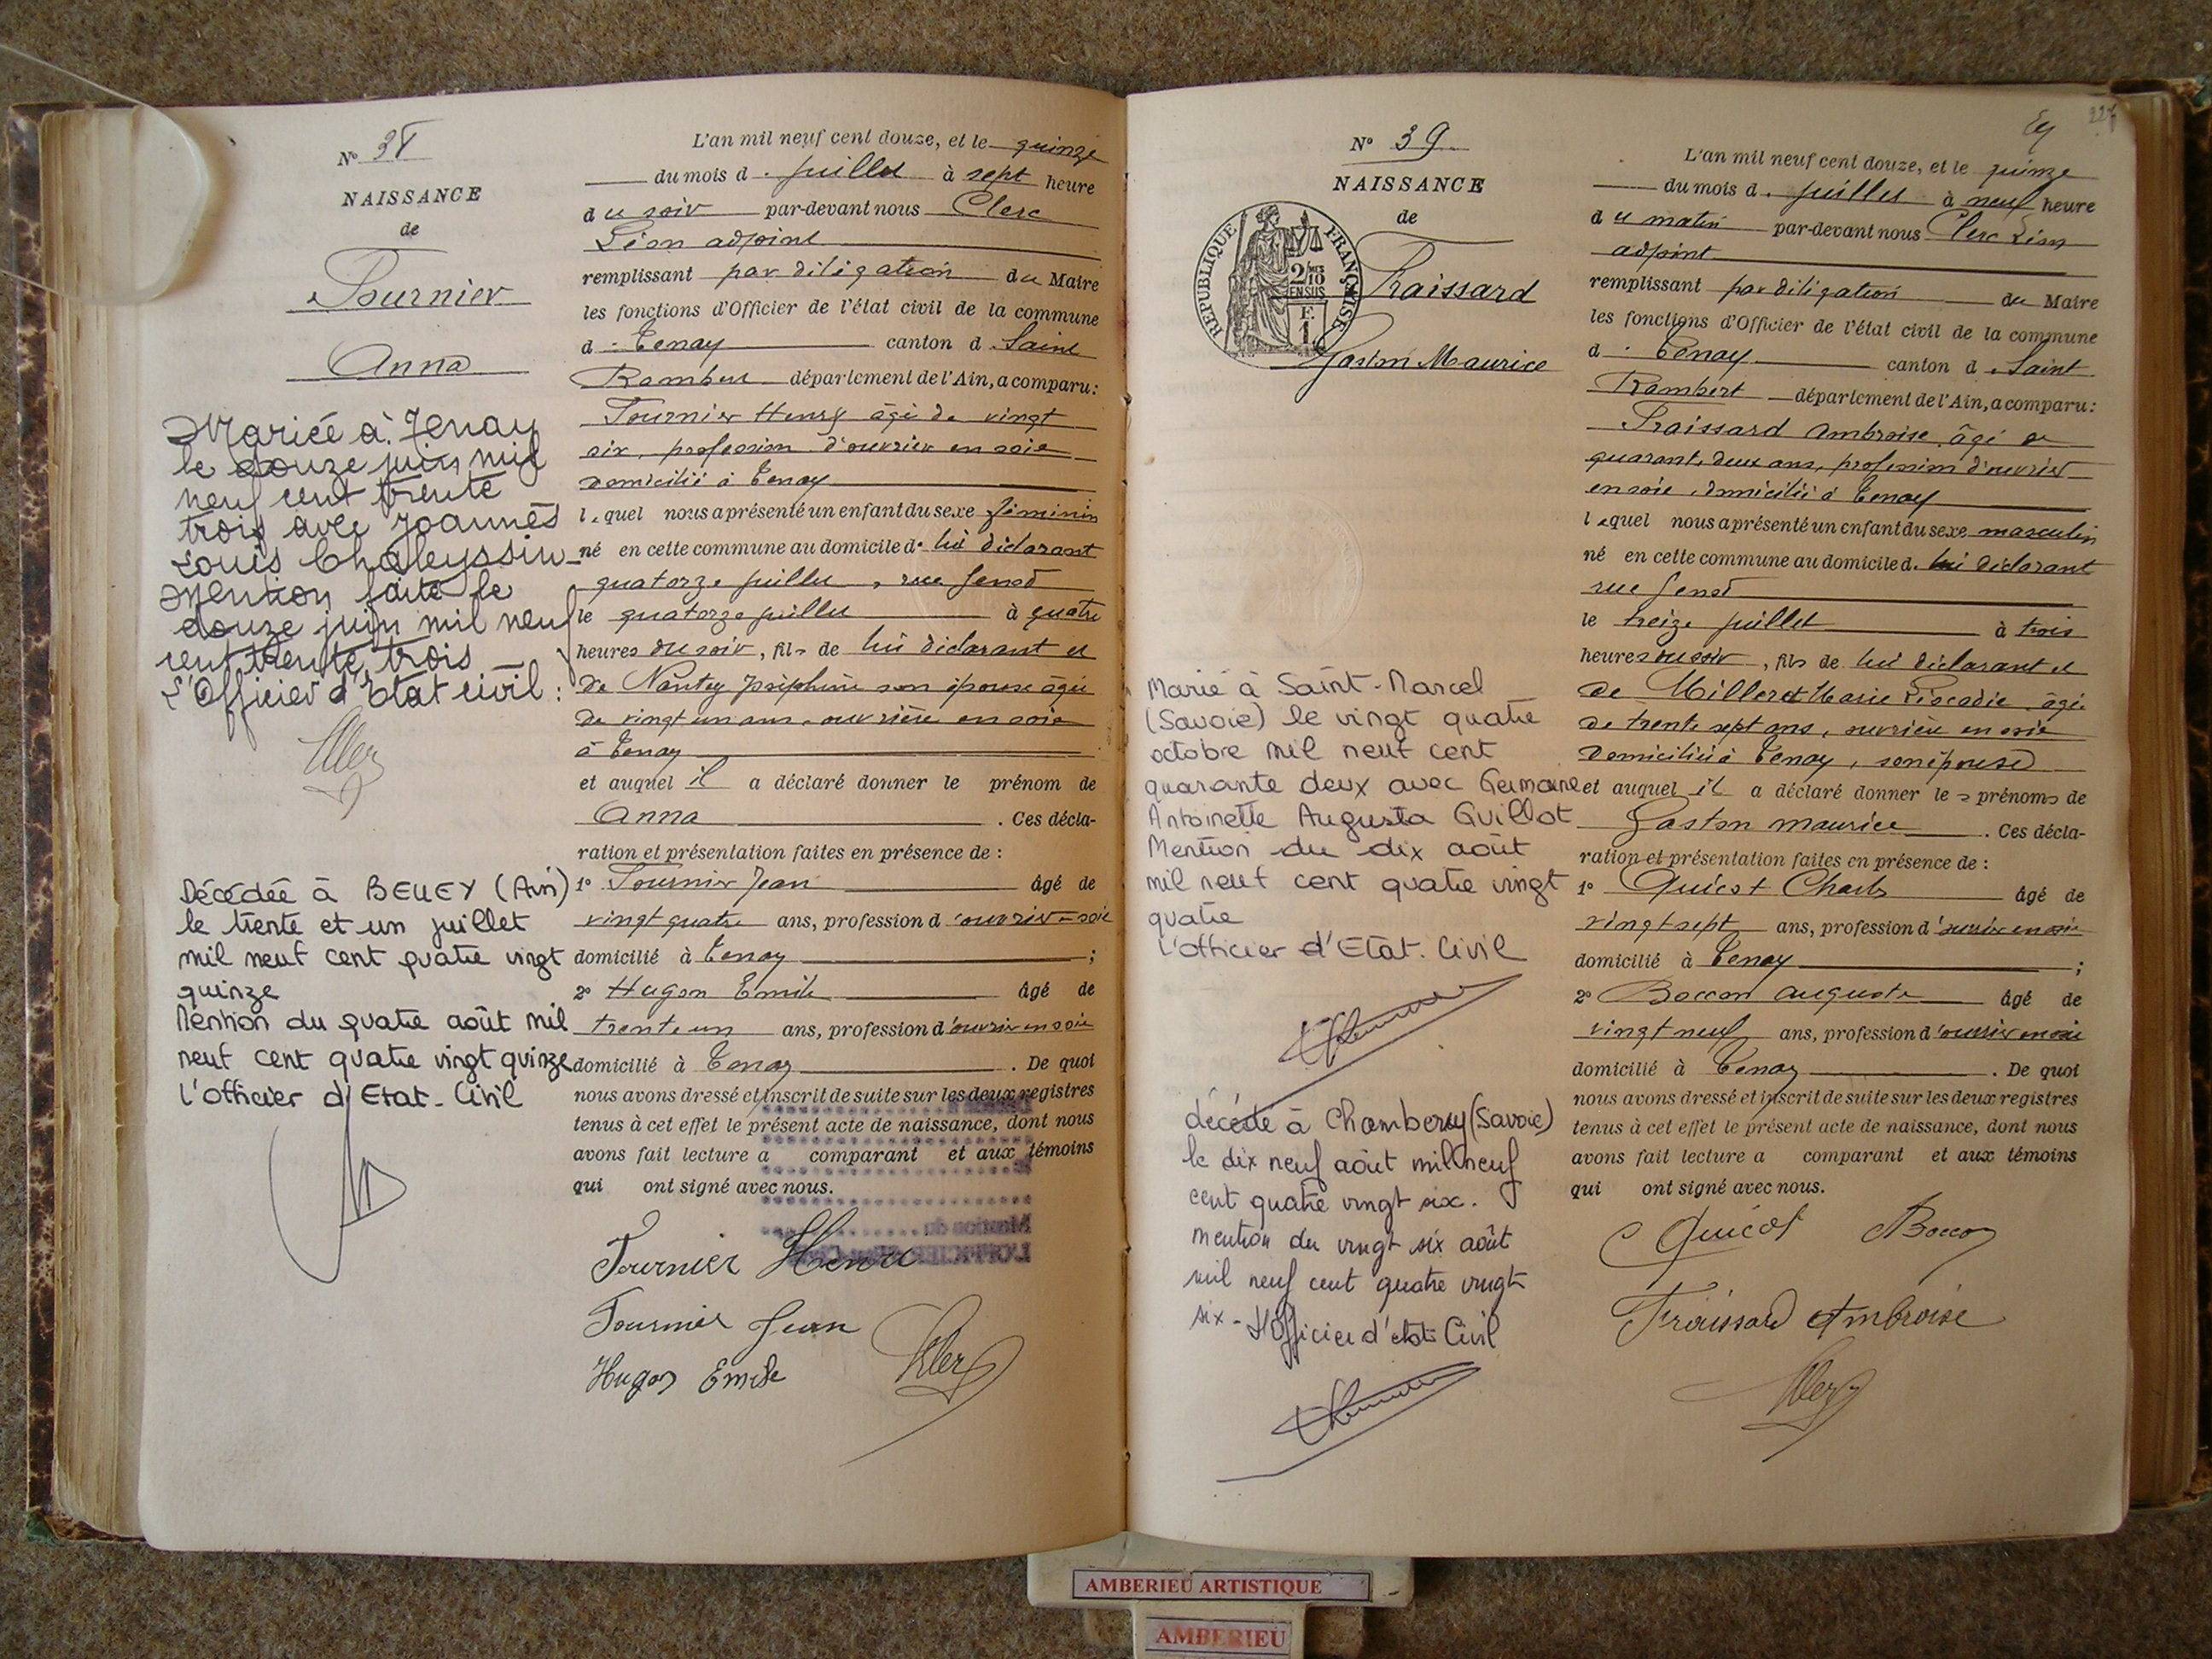 N° 38
NAISSANCE
de
Fournier
Anna
Mariée à Tenay
le douze juin mil
neuf cent trente
trois avec Joannès
Louis Chaleyssin
Mention faite le
douze juin mil neuf
cent trente trois
L'Officier d'Etat civil :
Décédée à BELLEY (Ain)
le trente et un juillet
mil neuf cent quatre vingt
quinze
Mention du quatre août mil
neuf cent quatre vingt quinze
l'officier d'Etat-Civil
L'an mil neuf cent douze, et le quinze
du mois d. juillet à sept heure
du soir par-devant nous Clerc
Léon adjoint
remplissant par délégation du Maire
les fonctions d'Officier de l'état civil de la commune
d. Tenay canton d. Saint
Rambert département de l'Ain, a comparu :
Fournier Henry âgé de vingt
six, profession d'ouvrier en soie
domicilié à Tenay
lequel nous a présenté un enfant du sexe féminin
né en cette commune au domicile de lui déclarant
quatorze juillet, rue Genod
le quatorze juillet à quatre
heures du soir, fils de lui déclarant et
de Nantey Joséphine son épouse âgée
de vingt un ans, ouvrière en soie
à Tenay
et auquel il a déclaré donner le prénom de
Anna . Ces décla-
ration et présentation faites en présence de :
1° Fournier Jean âgé de
vingt quatre ans, profession d'ouvrier-soie
domicilié à Tenay ;
2° Hugon Emile âgé de
trente un ans, profession d'ouvrier en soie
domicilié à Tenay . De quoi
nous avons dressé et inscrit de suite sur les deux registres
tenus à cet effet le présent acte de naissance, dont nous
avons fait lecture a comparant et aux témoins
qui ont signé avec nous.
Mention du
L'OFFICIER
Fournier Henri
Fournier Jean
Hugon Emile
Clerc
227
N° 39
NAISSANCE
de
RÉPUBLIQUE FRANÇAISE
2/10
EN SUS
F.
1
Fraissard
Gaston Maurice
Marié à Saint-Marcel
(Savoie) le vingt quatre
octobre mil neuf cent
quarante deux avec Germaine
Antoinette Augusta Guillot
Mention du dix août
mil neuf cent quatre vingt
quatre
l'officier d'Etat-Civil
décédé à Chambery (Savoie)
le dix neuf août mil neuf
cent quatre vingt six.
mention du vingt six août
mil neuf cent quatre vingt
six - L'Officier d'etat Civil
L'an mil neuf cent douze, et le quinze
du mois d. juillet à neuf heure
du matin par-devant nous Clerc Léon
adjoint
remplissant par délégation du Maire
les fonctions d'Officier de l'état civil de la commune
d. Tenay canton d. Saint
Rambert département de l'Ain, a comparu :
Fraissard Ambroise, âgé de
quarante deux ans, profession d'ouvrier
en soie, domicilié à Tenay
lequel nous a présenté un enfant du sexe masculin
né en cette commune au domicile d. lui déclarant
rue Genod
le treize juillet à trois
heures du soir, fils de lui déclarant et
de Milleret Marie Léocadie âgée
de trente sept ans, ouvrière en soie
domiciliée à Tenay, son épouse
et auquel il a déclaré donner les prénoms de
Gaston Maurice . Ces décla-
ration et présentation faites en présence de :
1° Quicot Charles âgé de
vingt sept ans, profession d'ouvrier en soie
domicilié à Tenay ;
2° Boccon Auguste âgé de
vingt neuf ans, profession d'ouvrier en soie
domicilié à Tenay . De quoi
nous avons dressé et inscrit de suite sur les deux registres
tenus à cet effet le présent acte de naissance, dont nous
avons fait lecture a comparant et aux témoins
qui ont signé avec nous.
C Quicot Boccon
Fraissard Ambroise
Clerc
AMBERIEU ARTISTIQUE
AMBERIEU